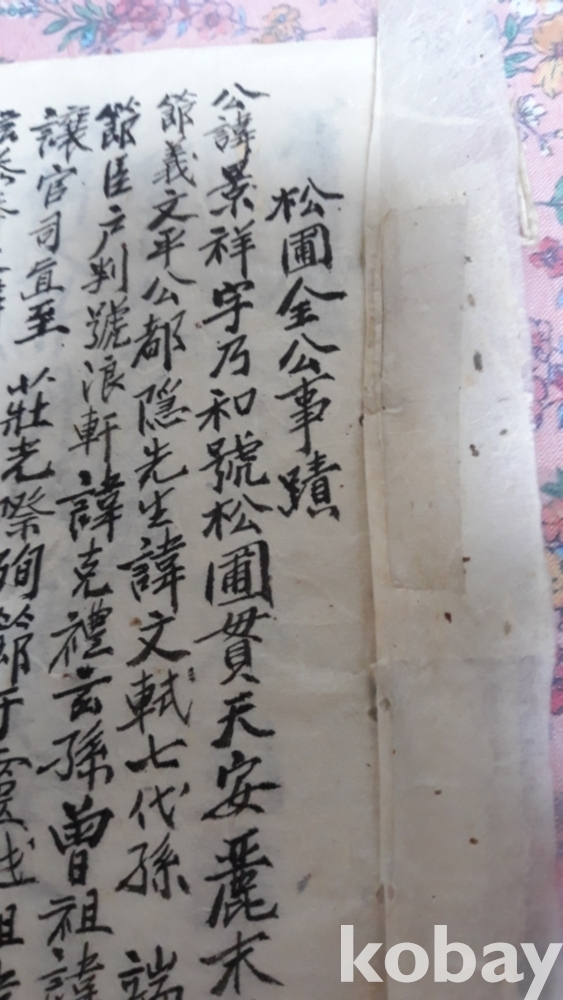 松圃全公事蹟
公諱景祥字乃和號松圃貫天安麗末
節義文平公都隱先生諱文軾七代孫 端
節臣户判號浪軒諱克禮玄孫曾祖諱
讓官司直至 莊光際殉節于
kobay